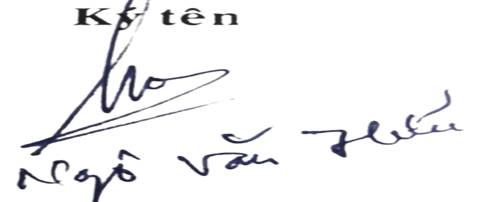 Ký tên
Ngô Văn Hiếu